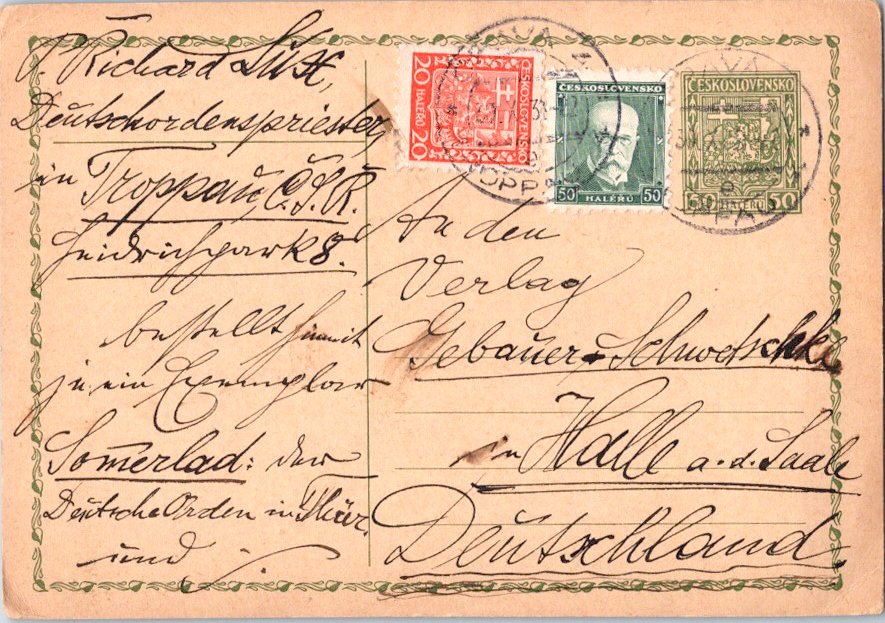 P. Richard
Deutschordenspriester,
in Troppau, Č.S.R.
Heidrichpark 8.
bestellt hiemit
je ein Exemplar
Somerlad: der
Deutsche Orden in Thür.
und
ČESKOSLOVENSKO
20 HALÉŘŮ 20
ČESKOSLOVENSKO
50 HALÉŘŮ 50
ČESKOSLOVENSKO
50 HALÉŘŮ 50
OPAVA
TROPPAU
An den
Verlag
Gebauer-Schwetschke
in Halle a.d. Saale
Deutschland